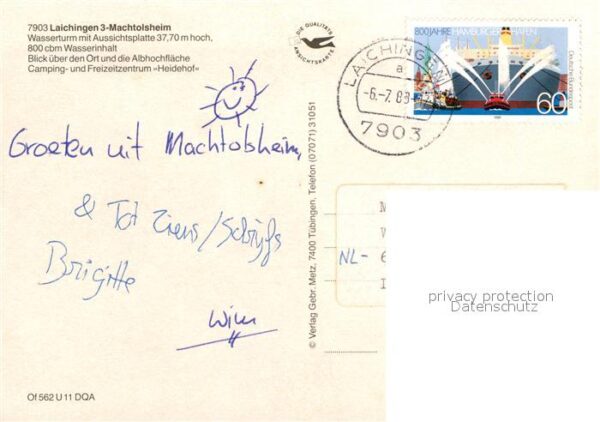 7903 Laichingen 3-Machtolsheim
Wasserturm mit Aussichtsplatte 37,70 m hoch,
800 cbm Wasserinhalt
Blick über den Ort und die Albhochfläche
Camping- und Freizeitzentrum »Heidehof«
DIE QUALITÄTS
ANSICHTSKARTE
800 JAHRE HAMBURGER HAFEN
Deutsche Bundespost
60
LAICHINGEN
a
-6.-7.89-
7903
Groeten uit Machtolsheim,
& Tot Ziens/Schrijfs
Brigitte
Wim
© Verlag Gebr. Metz, 7400 Tübingen, Telefon (07071) 31051
M
NL- 6
privacy protection
Datenschutz
Of 562 U 11 DQA